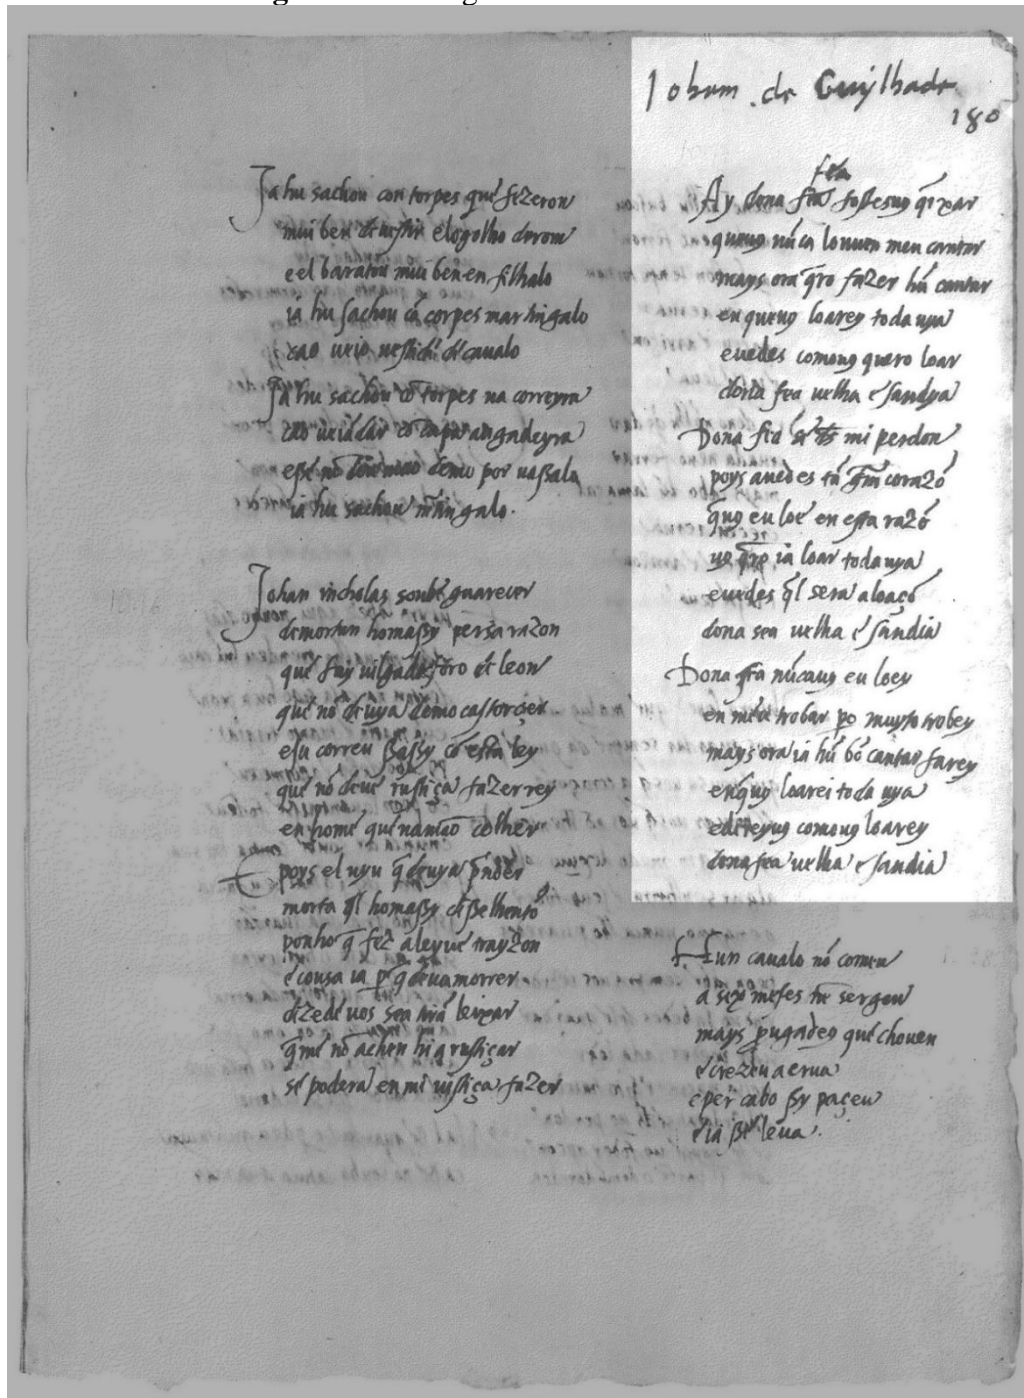 Ja hu sachou con torpes que fezeron
mui ben e logolho derom
e el baratou mui ben en filhalo
ia hu sachou cō corpes martingalo
cao ueio de caualo
Ja hu sachou cō torpes na correyra
cao angadeyra
nō demo por uaßalo
ia hu sachou
Johan nicholas soube guarecer
de mort un homaßy per sa razon
que fuy foro de leon
que nō deuya demo castorçer
e su correu ßaßy cō esta ley
que nō deue iustiça fazer rey
en home que namāo colher
E poys el uyu q̄ deuya
morte q̄l homaßy
ponho q̄ fez aleyue trayzon
e cousa ia per q̄ deua morrer
dizede uos leixar
q̄ me nō achen
se podera en mi iustiça fazer
Iohum de Guylhade
180
fea
Ay dona fea fostesuꝯ q̄ixar
queuꝯ nūca louuen meu cantar
mays ora q̄ro fazer hū cantar
en queuꝯ loarey toda uya
euedes comouꝯ quero loar
dona fea uelha e sandya
Dona fea se ds mi perdon
poys auedes tā grā corazō
q̄uꝯ eu loe en esta razō
uꝯ q̄ro ia loar toda uya
euedes q̄l sera a loaçō
dona fea uelha e sandia
Dona fea nūcauꝯ eu loey
en meu trobar po muyto trobey
mays ora ia hū bō cantar farey
en q̄uꝯ loarei toda uya
edireyuꝯ comouꝯ loarey
dona fea uelha e sandia
Hun caualo nō comeu
a seix meses nē sergeu
mays que choueu
e crezeu a erua
e per cabo ßy paçeu
e ia ße leua.